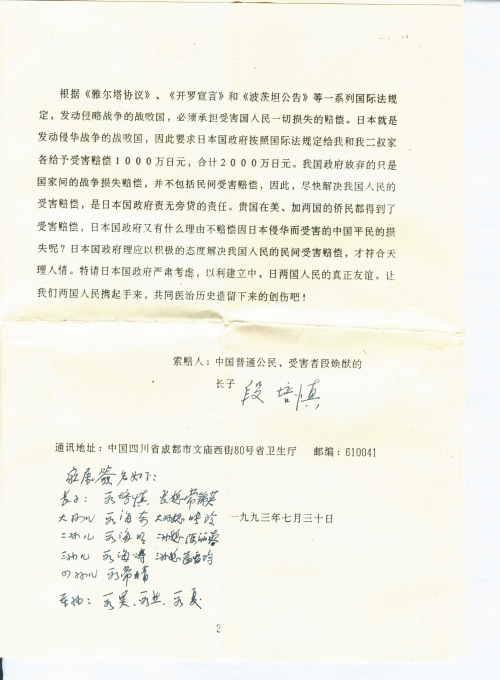 根据《雅尔塔协议》、《开罗宣言》和《波茨坦公告》等一系列国际法规
定，发动侵略战争的战败国，必须承担受害国人民一切损失的赔偿。日本就是
发动侵华战争的战败国，因此要求日本国政府按照国际法规定给我和我二叔家
各给予受害赔偿１０００万日元，合计２０００万日元。我国政府放弃的只是
国家间的战争损失赔偿，并不包括民间受害赔偿，因此，尽快解决我国人民的
受害赔偿，是日本国政府责无旁贷的责任。贵国在美、加两国的侨民都得到了
受害赔偿，日本国政府又有什么理由不赔偿因日本侵华而受害的中国平民的损
失呢？日本国政府理应以积极的态度解决我国人民的民间受害赔偿，才符合天
理人情。特请日本国政府严肃考虑，以利建立中、日两国人民的真正友谊。让
我们两国人民携起手来，共同医治历史遗留下来的创伤吧！
索赔人：中国普通公民、受害者段焕猷的
长子
段培慎
通讯地址：中国四川省成都市文庙西街80号省卫生厅 邮编：610041
家属签名如下：
长子：段培慎 长媳
大孙儿 段海东 大孙媳
一九九三年七月三十日
二孙儿 段海明 二孙媳
三孙儿 段海涛 三孙媳
四孙儿
段昊、段丝、段夏
2